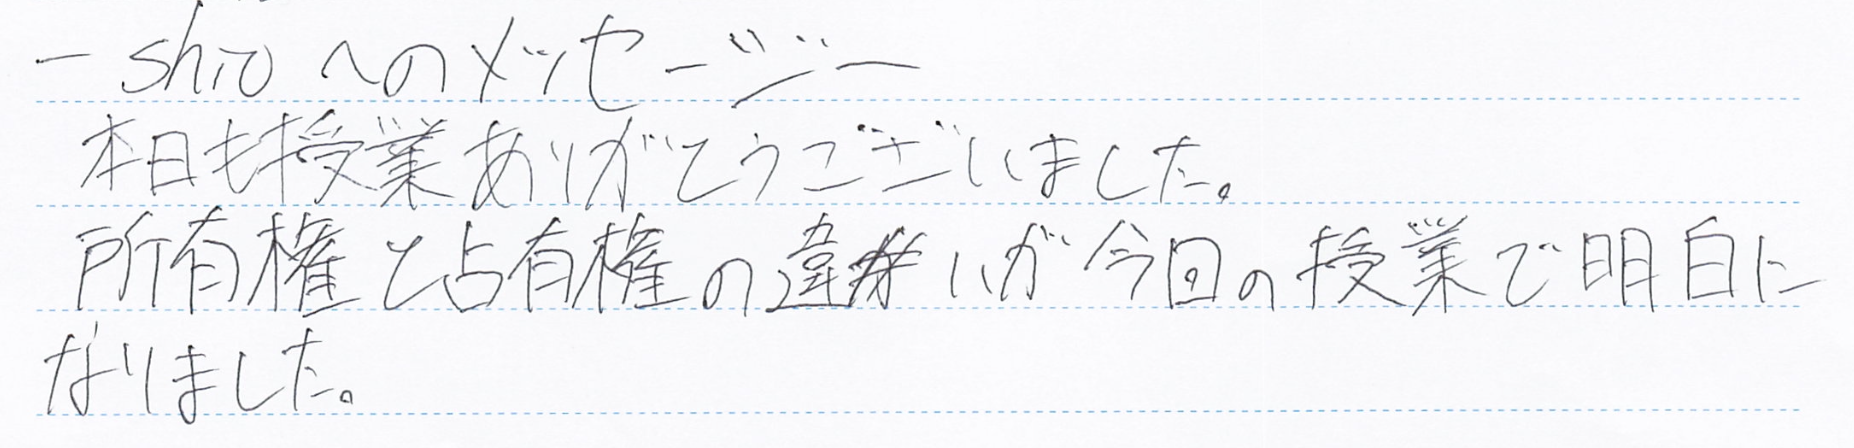 ー shiro へのメッセージー
本日も授業ありがとうございました。
所有権と占有権の違いが今回の授業で明白に
なりました。